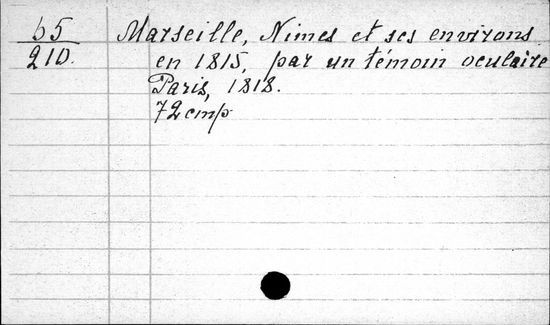 55
210.
Marseille, Nimes et ses environs
en 1815, par un témoin oculaire
Paris, 1818.
72 cmp